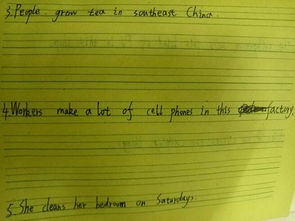 3. People grow tea in southeast China.
4. Workers make a lot of cell phones in this factory.
5. She cleans her bedroom on Saturdays.